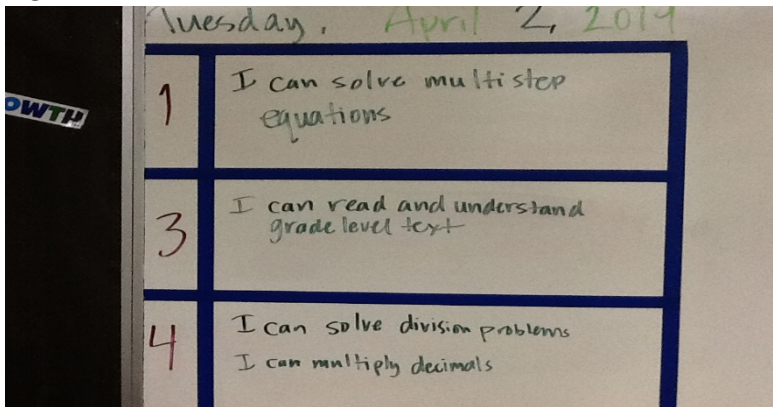 Tuesday, April 2, 2019
OWTH
1
I can solve multistep
equations
3
I can read and understand
grade level text
4
I can solve division problems
I can multiply decimals